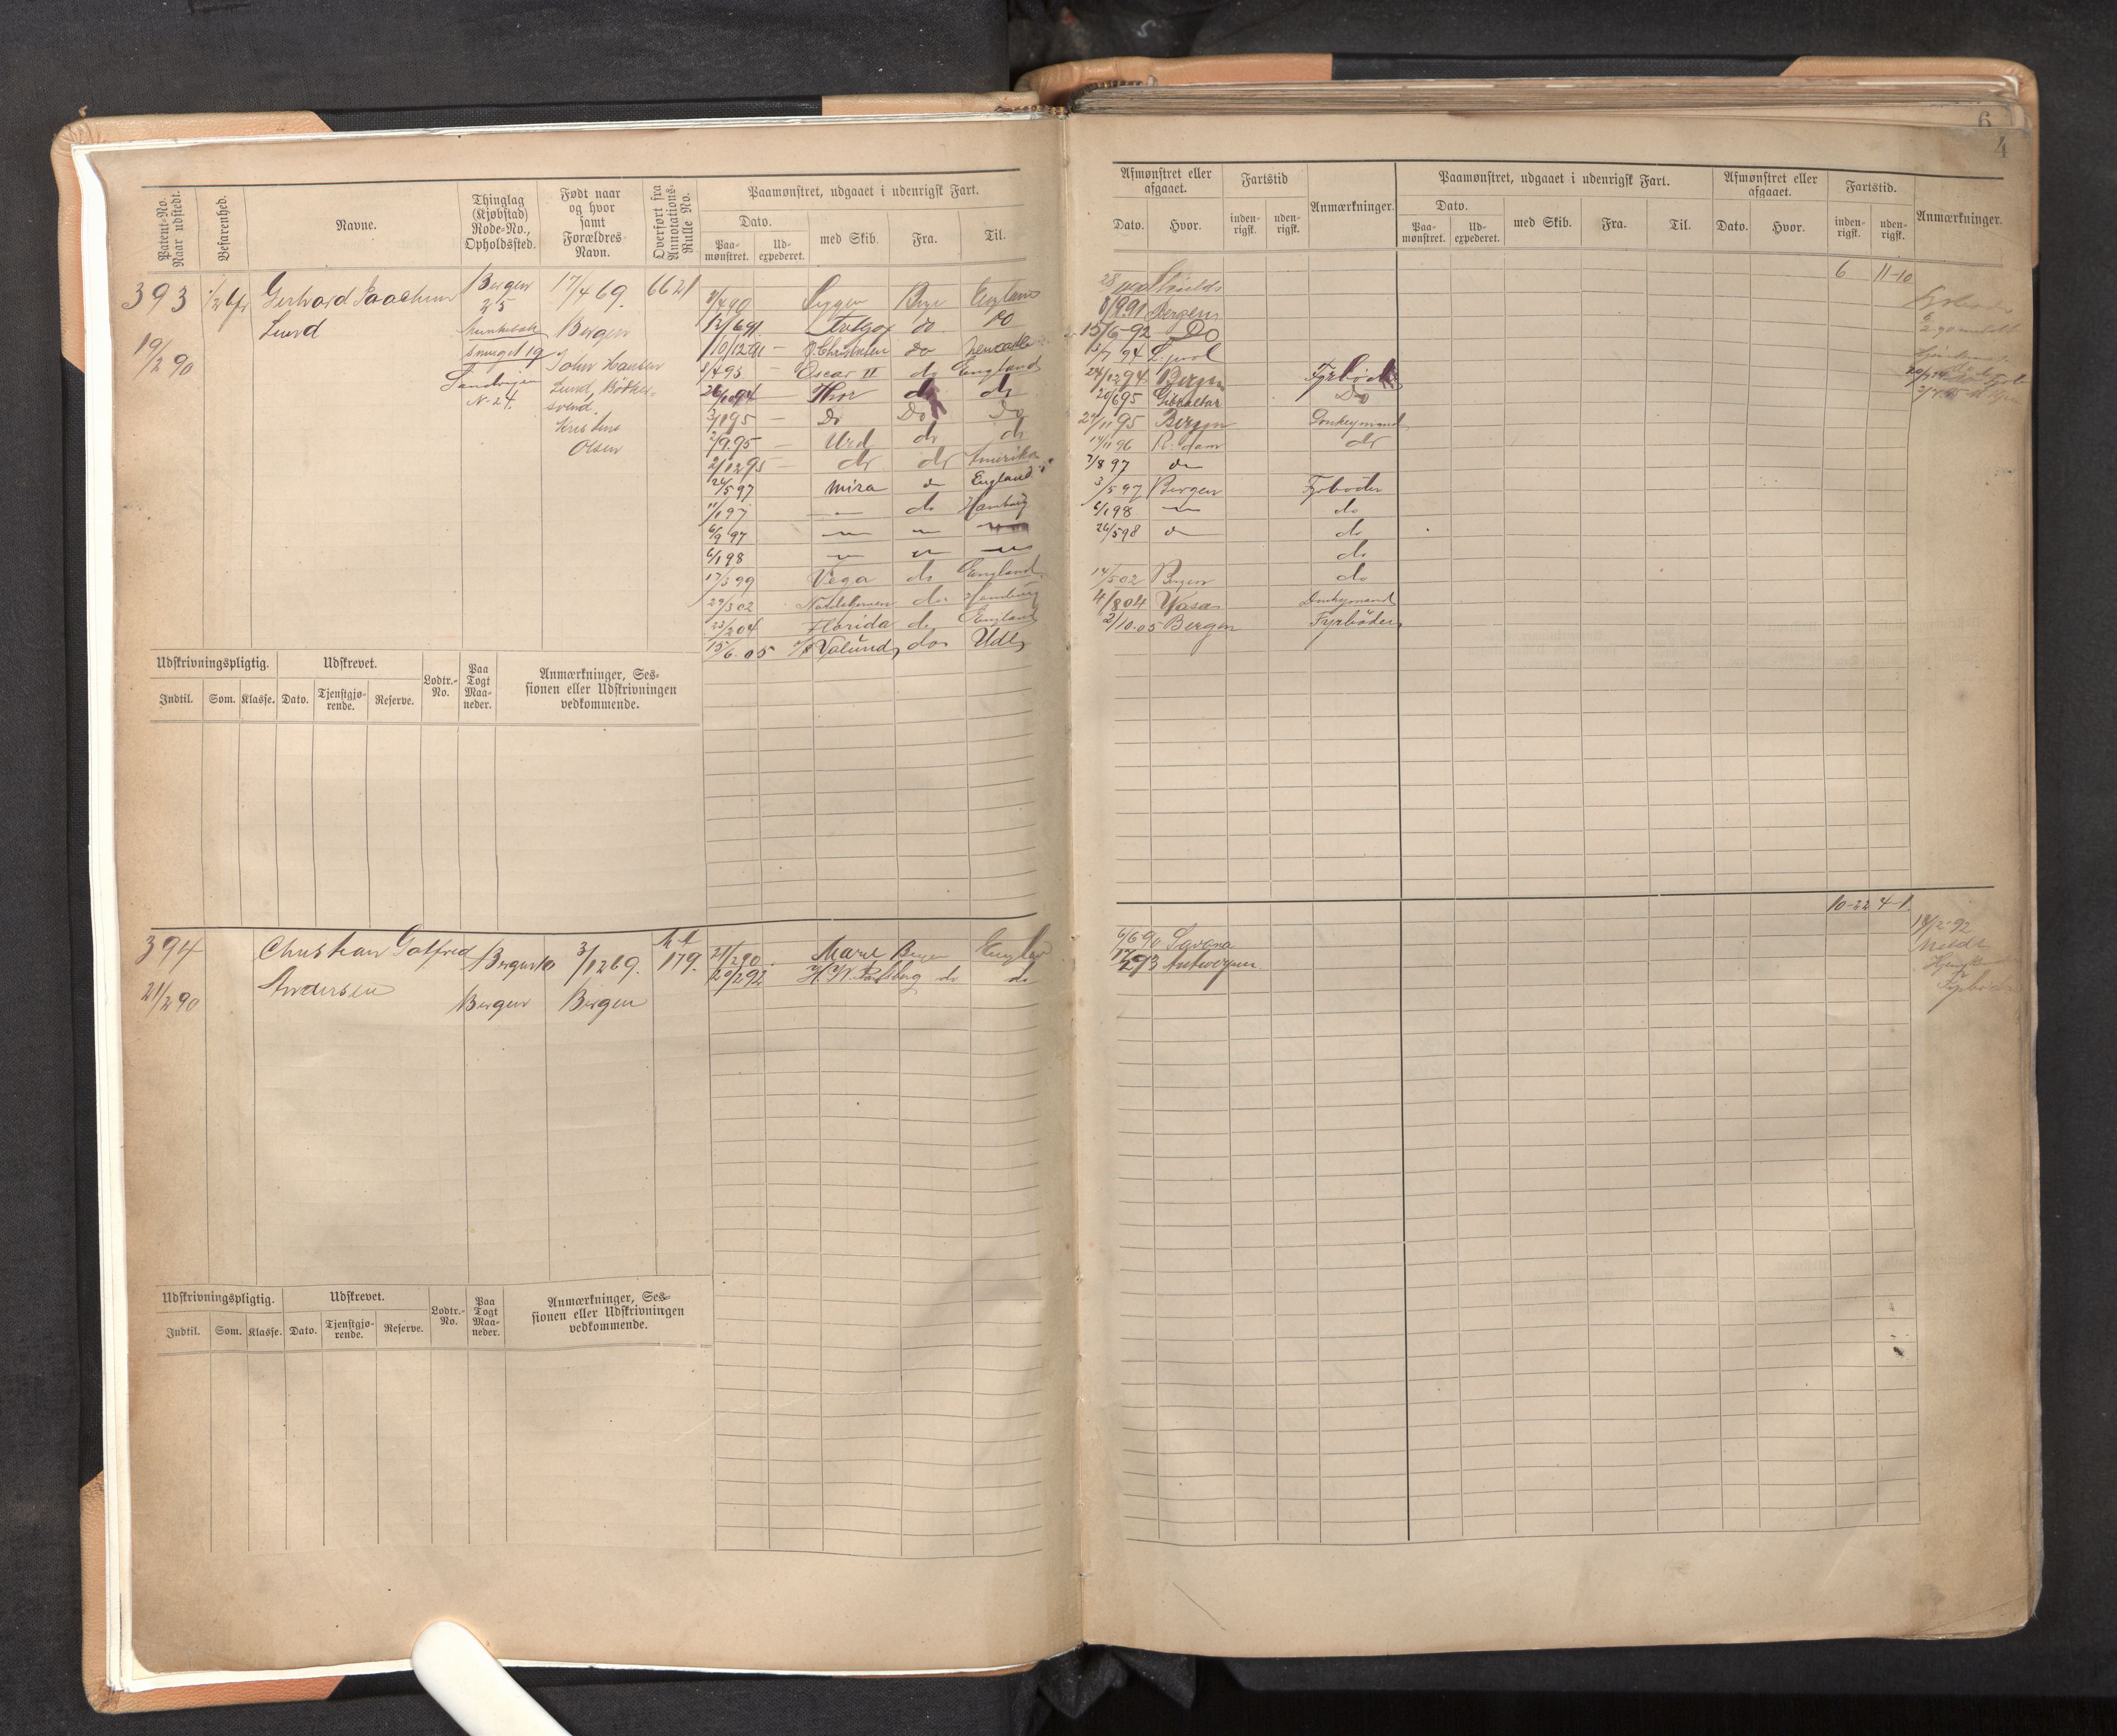 6
4
Patent-No. Naar udstedt.
Befarenhed.
Navne.
Thinglag (Kjøbstad) Rode-No., Opholdssted.
Født naar og hvor samt Forældres Navn.
Overført fra Annotations-Rulle No.
Paamønstret, udgaaet i udenrigsk Fart.
Dato.
Paa-mønstret.
Ud-expederet.
med Skib.
Fra.
Til.
Afmønstret eller afgaaet.
Dato.
Hvor.
Fartstid
inden-rigsk.
uden-rigsk.
Anmærkninger.
Paamønstret, udgaaet i udenrigsk Fart.
Dato.
Paa-mønstret.
Ud-expederet.
med Skib.
Fra.
Til.
Afmønstret eller afgaaet.
Dato.
Hvor.
Fartstid.
inden-rigsk.
uden-rigsk.
Anmærkninger.
393
19/2 90
Gerhard Joachim
Lund
Bergen
Smuget 19
Sandvigen
N. 24.
17/4 69.
Bergen
John Hansen
Lund, Bødker-
svend.
Kristine
Olsen
6621
8/4 90 England
12/6 91. do do
10/12 91 O. Christensen do Newcastle
Oscar II do England
26/10 94 Thor do do
3/1 95 Do Do Do
2/9 95 Urd do do
2/12 95 do do Amerika
24/5 97 Mira do England
11/1 97 do Hamburg
6/9 97
6/1 98
17/3 99 Vega do England
29/3 02 do Hamburg
23/2 04 Florida do England
15/6 05 Valund do Udl
Shields
Bergen
15/6 92 Do
13/7 94 L.pool
24/12 94 Bergen Fyrbøder
20/6 95 Gibraltar Do
Bergen Donkeymand
14/11 96 R.dam do
7/8 97 do
3/5 97 Bergen Fyrbøder
6/1 98 do
26/5 98 do do
do
14/5 02 Bergen do
4/8 04 Vasa Donkeymand
2/10 05 Bergen Fyrbøder
6 11-10
Udskrivningspligtig.
Indtil.
Som.
Klasse.
Udskrevet.
Dato.
Tjenstgjø-rende.
Reserve.
Lodtr.-No.
Paa Togt Maa-neder.
Anmærkninger, Ses-sionen eller Udskrivningen vedkommende.
394
21/2 90
Christian Gotfred
Andersen
Bergen 10
Bergen
3/12 69.
Bergen
179.
21/2 90 Marie Bergen England
29/2 92 do do
6/6 90 Savona
Antwerpen
10-22 4-1
18/2-92
Meldt
Fyrbøder
Udskrivningspligtig.
Indtil.
Som.
Klasse.
Udskrevet.
Dato.
Tjenstgjø-rende.
Reserve.
Lodtr.-No.
Paa Togt Maa-neder.
Anmærkninger, Ses-sionen eller Udskrivningen vedkommende.